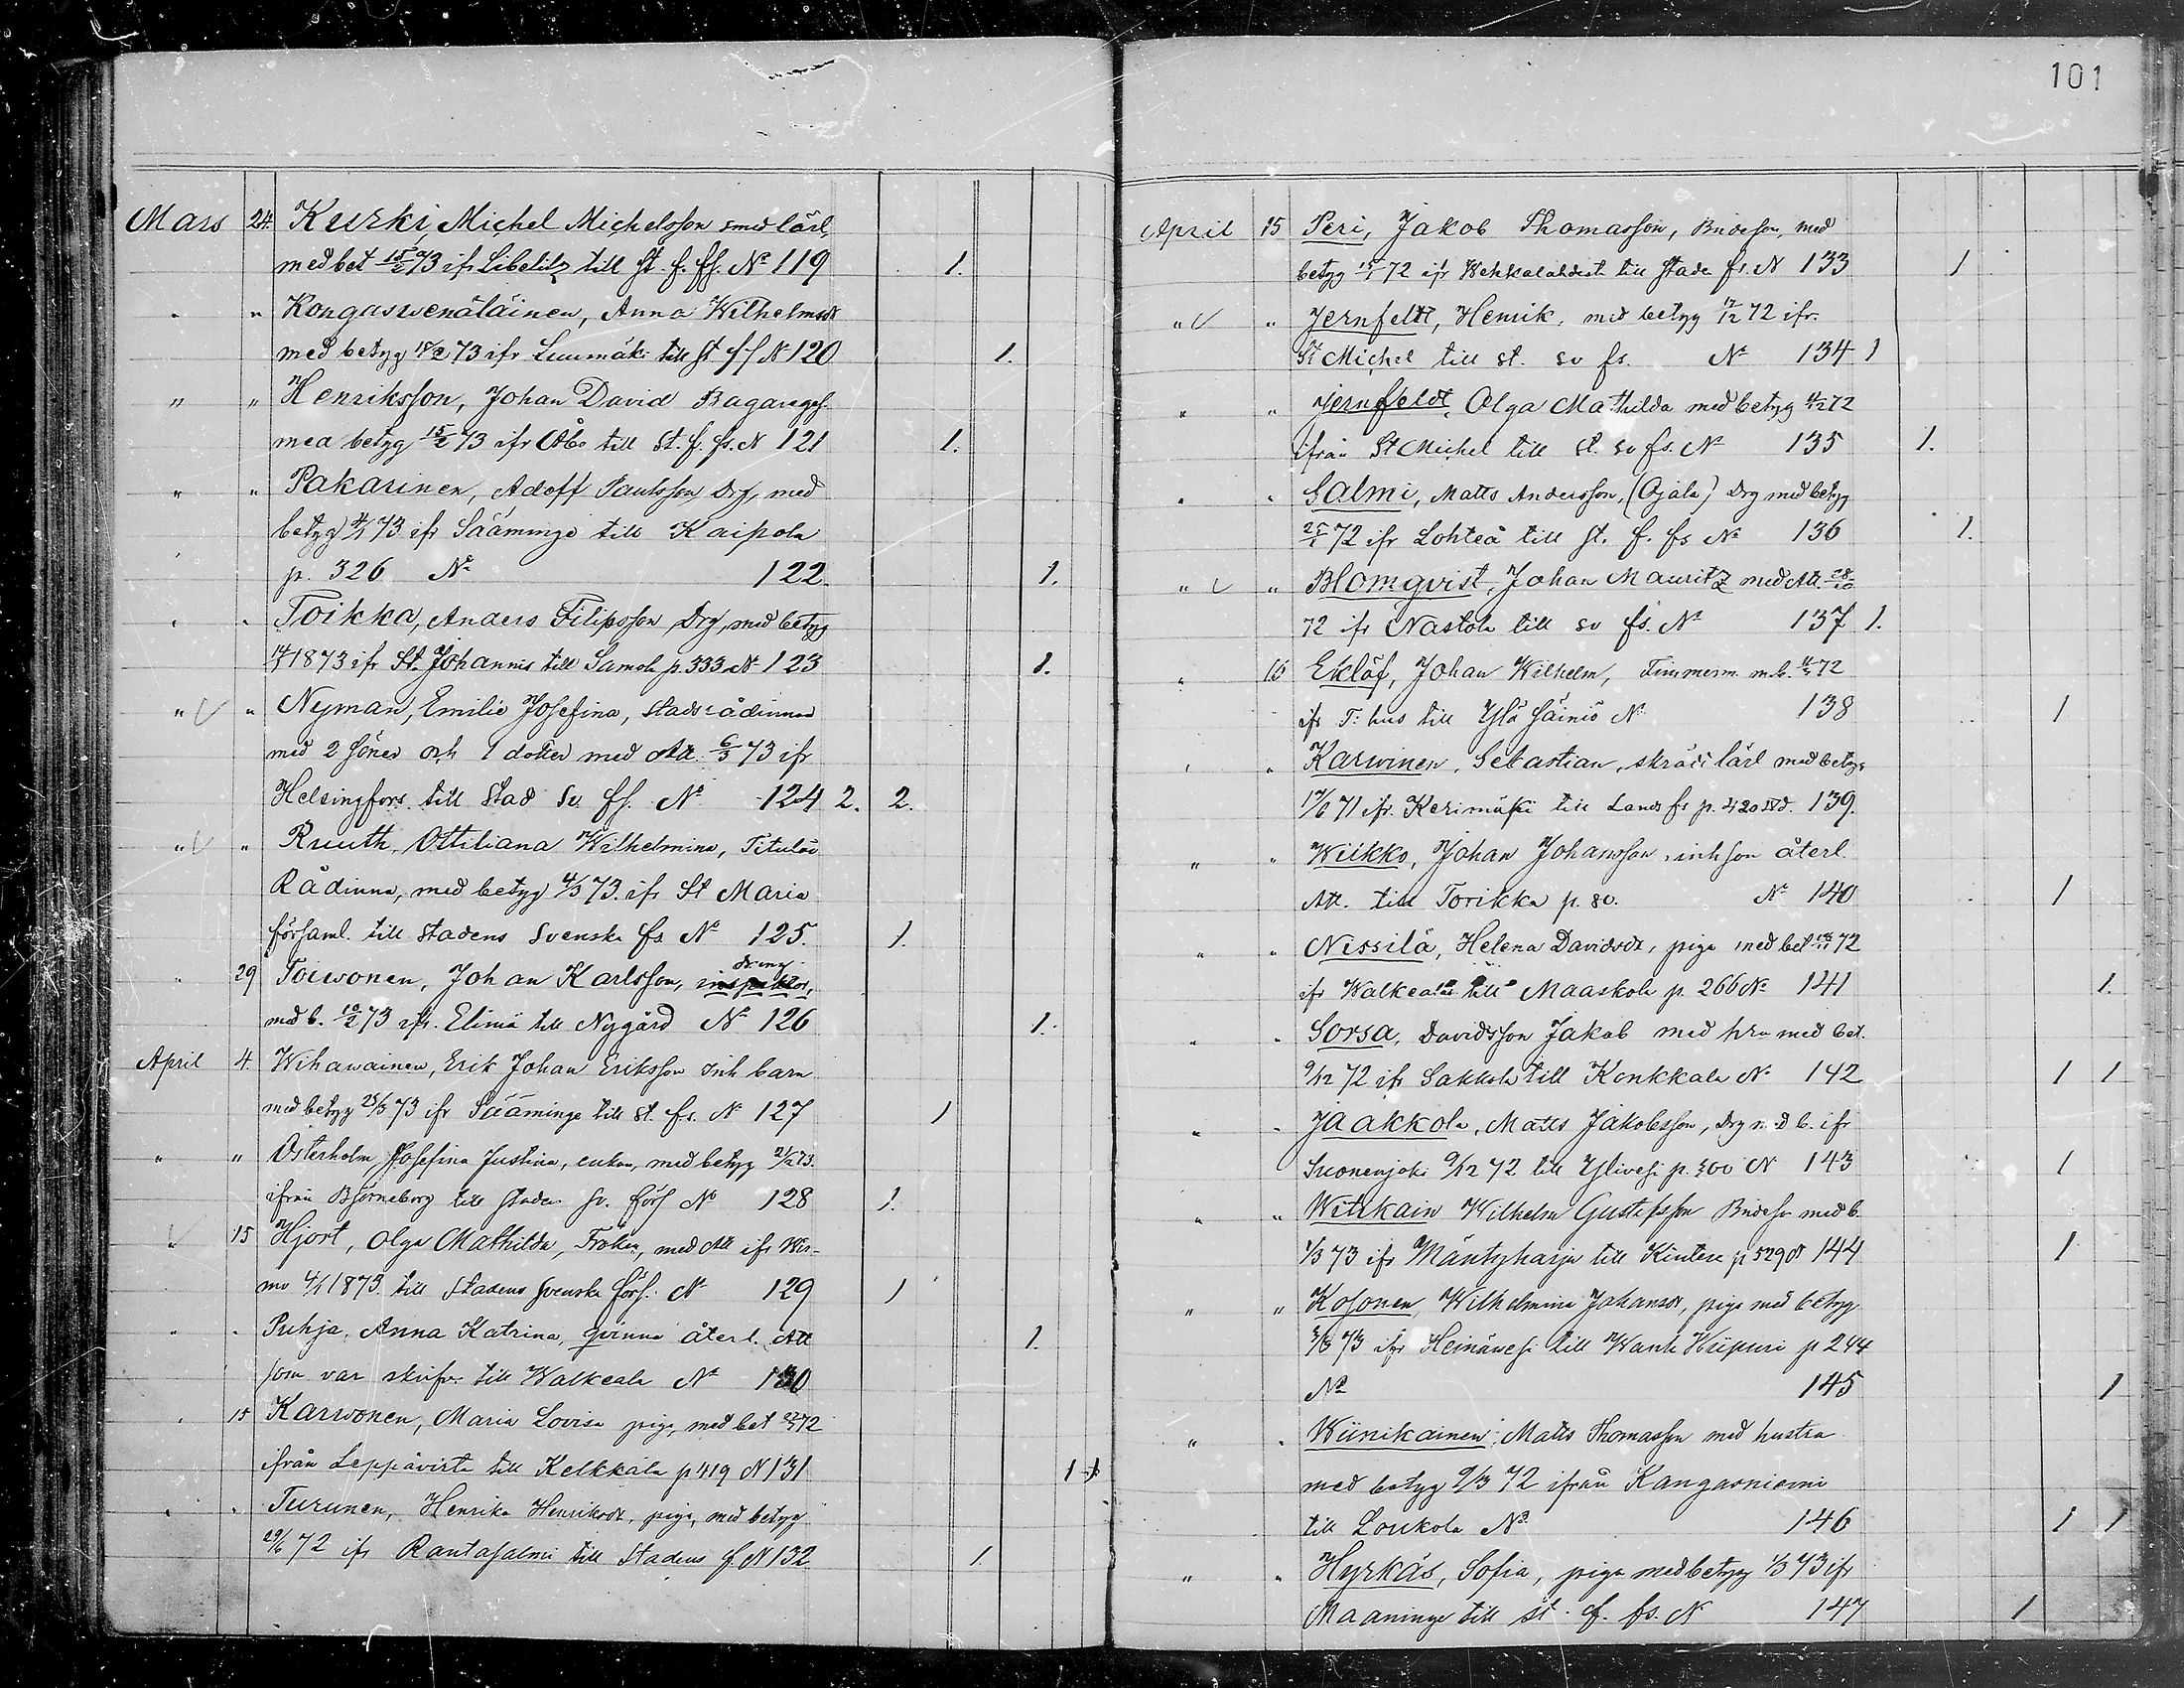 101
Mars 24. Kurki, Michel Michelsson smedlärl,
med bet 15/2 73 ifr Libelitz till St. f. fs. No 119 1.
" " Kongaswenäläinen, Anna Wilhelmsdr
med betyg 18/2 73 ifr Luumäki till St ff No 120 1.
" " Henriksson, Johan David Bagareges.
med betyg 15/2 73 ifr Åbo till St. f. fs. N 121 1.
" " Pakarinen, Adolf Paulsson Drg, med
betyg 4/1 73 ifr Sääminge till Kaipola
p. 326 No 122. 1.
" " Toikka, Anders Filipsson Drg, med betyg
1873 ifr St. Johannis till Samola p. 333 No 123 1.
" " Nyman, Emilie Josefina, Stadsrådinna
med 2 söner och 1 dotter med Att. 6/3 73 ifr
Helsingfors till Stad Sv. fs. No 124 2. 2.
" " Ruuth, Ottiliana Wilhelmina, Titulär
Rådinna, med betyg 4/3 73. ifr St Maria
församl. till Stadens Svenska fs No 125. 1.
" 29 Toiwonen, Johan Karlsson, inspektor, dräng
med b. 10/2 73 ifr. Elimä till Nygård No 126 1.
April 4. Wihawainen, Erik Johan Eriksson inh barn
med betyg 25/3 73 ifr Sääminge till St. fs. No 127 1
" " Österholm Josefina Justina, enkan, med betyg 2/12 73.
ifrån Björneborg till staden Sv. förs No 128 1.
15 Hjort, Olga Mathilda, Fröken, med Att ifr Wir-
mo 4/1 1873. till Stadens Svenska förs. No 129 1
" " Puhja, Anna Katrina, qvinna återl. Att
som var skrifv. till Walkeala No 130 1.
" 15 Karwonen, Maria Lovisa piga, med bet 72
ifrån Leppävirta till Kelkkala p 419 N 131 1
" " Turunen, Henrika Henriksdr, piga, med betyg
29/6 72 ifr Rantasalmi till Stadens f. N 132 1.
April 15 Peri, Jakob Thomasson, Bndeson, med
betyg 72 ifr Wehkalaldest till Stade fs. N 133 1
" " Jernfeldt, Henrik, med betyg 72 ifr.
St Michel till st. sv fs. No 134 1
" " Jernfeldt, Olga Mathilda med betyg 72
ifrån St Michel till St. sv fs. No 135 1.
" " Salmi, Matts Andersson, (Ojala) Drg med betyg
25/1 72 ifr Lohteå till St. f. fs No 136 1.
" " Blomqvist, Johan Mauritz med Att. 28/10
72 ifr Nastola till sv fs. No 137 1.
" 16 Eklöf, Johan Wilhelm, Timmerm. m. b. 72
ifr T: hus till Ylä Säiniö No 138 1
" " Karwinen, Sebastian, skräd lärl med betyg
71 ifr. Kerimäki till Lands fs p. 420 139.
" " Wilkko, Johan Johansson, inhson återl.
Att. till Torikka p. 80. No 140 1
" " Nissilä, Helena Davidsdr, piga med bet 72
ifr Walkeala till Maaskola p. 266 No 141 1.
" " Sorsa, Davidsson Jakob med hru med bet.
9/12 72 ifr Sakkola till Konkkala No 142 1 1
" " Jaakkola, Matts Jakobsson, Drg med b. ifr
Suonenjoki 9/12 72 till Ylivesi p. 300 N 143 1
" " Witikain Wilhelm Gustafsson Bndeso med b.
1/3 73 ifr Mäntyharju till Kintere p 529 144 1
" " Kosonen Wilhelmina Johansdr, piga med betyg
73 ifr Heinävesi till Wanh Wiipuri p 244
No 145 1
" " Wiinikainen, Matts Thomasson med hustra
med betyg 9/3 72 ifrån Kangasniemi
till Loukola No 146 1 1
" " Hyrkäs, Sofia, piga med betyg 1/3 73 ifr
Maaninge till st. f. fs. N 147 1